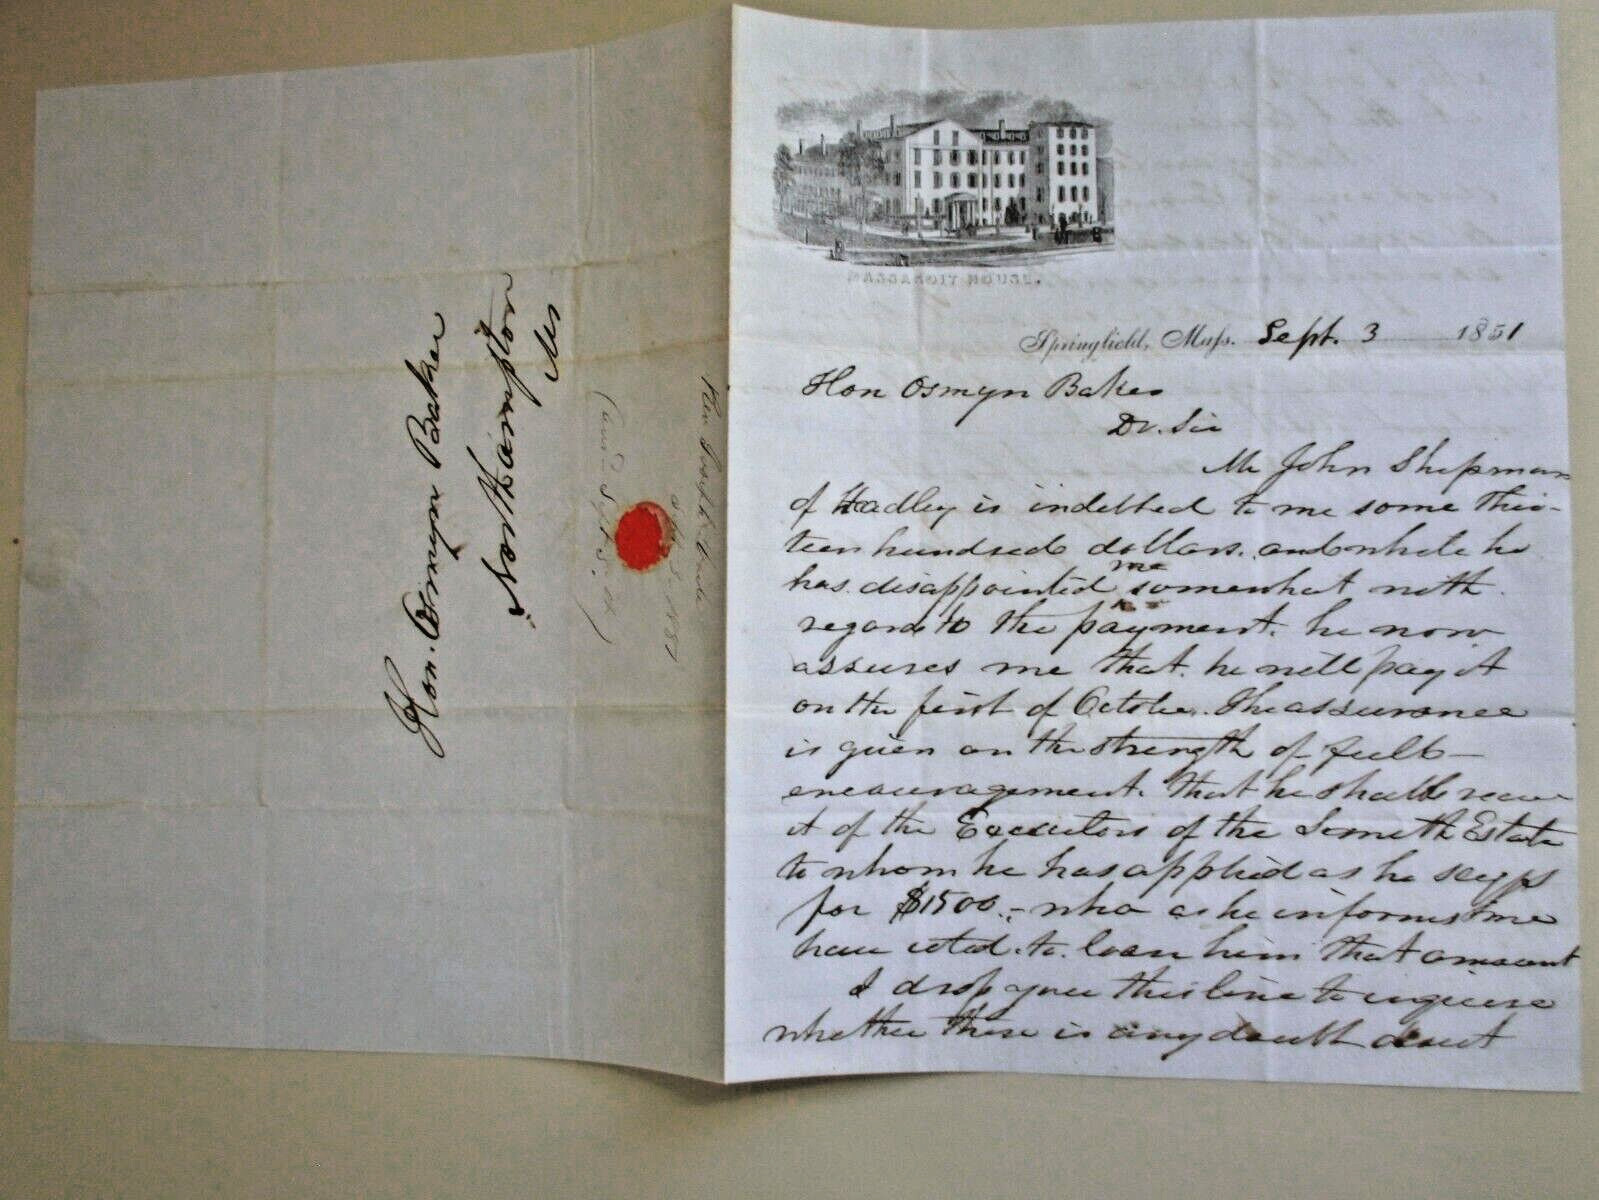 MASSASOIT HOUSE.
Springfield, Mass. Sept. 3 1851
Hon Osmyn Baker
Dr. Sir
Mr John Shipman
of Hadley is indebted to me some thir-
teen hundred dollars. and while he
has disappointed me somewhat with
regard to the payment. he now
assures me that. he will pay it
on the first of October. The assurance
is given on the strength of full
encouragement. that he shall receive
it of the Executors of the Smith Estate
to whom he has applied as he says
for $1500.- who as he informs me
have voted. to. loan him that amount
I drop you this line to inquire
whether there is any doubt about
Hon. Osmyn Baker
Northampton
Ms
Sept 3. 1851